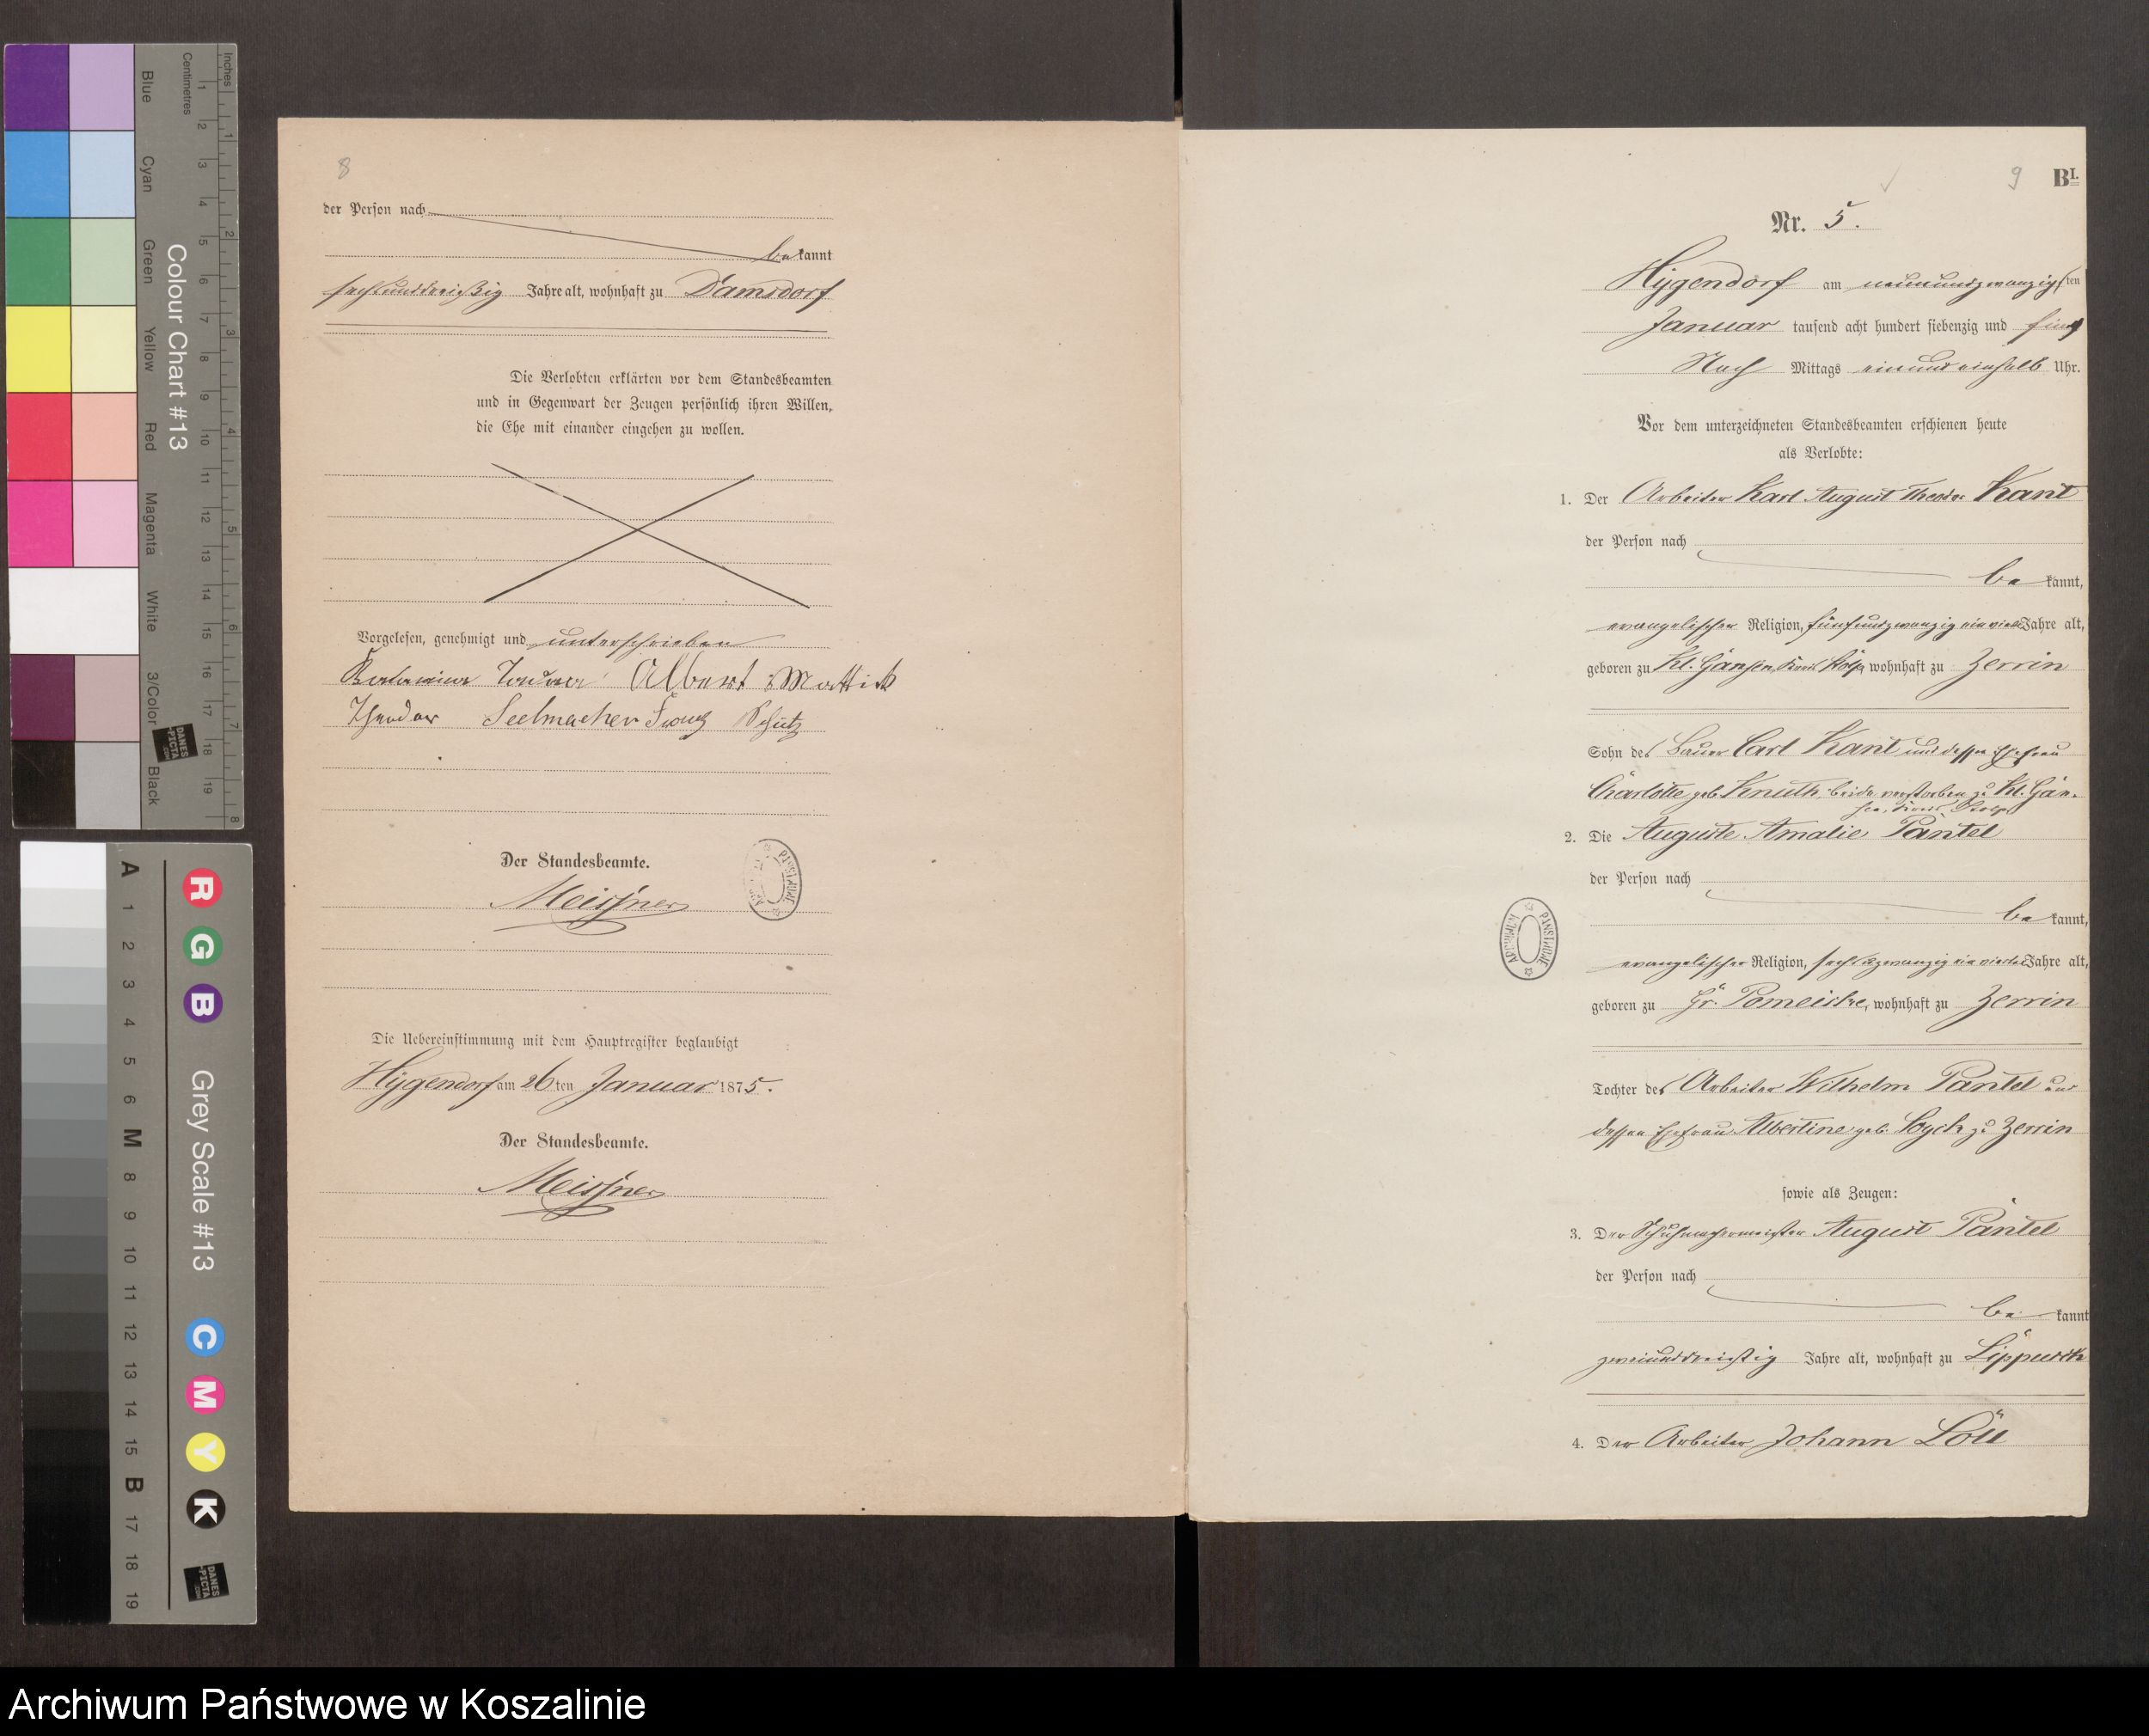 8
der Person nach
bekannt
sechsunddreißig Jahre alt, wohnhaft zu Damsdorf
Die Verlobten erklärten vor dem Standesbeamten
und in Gegenwart der Zeugen persönlich ihren Willen,
die Ehe mit einander eingehen zu wollen.
Vorgelesen, genehmigt und unterschrieben
Albert Mattick
Theodor Seelmacher Franz Schütz
Der Standesbeamte.
Meissner
Die Uebereinstimmung mit dem Hauptregister beglaubigt
Hygendorf am 26ten Januar 1875.
Der Standesbeamte.
Meissner
9 BI.
Nr. 5.
Hygendorf am neunundzwanzigsten
Januar tausend acht hundert siebenzig und fünf
Nach Mittags ein und einhalb Uhr.
Vor dem unterzeichneten Standesbeamten erschienen heute
als Verlobte:
1. Der Arbeiter Karl August Theodor Kant
der Person nach
bekannt,
evangelischer Religion, fünfundzwanzig ein viertel Jahre alt,
geboren zu Kl. Gansen, Kreis Stolp, wohnhaft zu Zerrin
Sohn des Bauer Carl Kant und dessen Ehefrau
Charlotte geb. Knuth, beide verstorben zu Kl. Gan-
sen, Kreis Stolp
2. Die Auguste Amalie Pantel
der Person nach
bekannt,
evangelischer Religion, sechsundzwanzig ein viertel Jahre alt,
geboren zu Gr. Pomeiske, wohnhaft zu Zerrin
Tochter des Arbeiter Wilhelm Pantel und
dessen Ehefrau Albertine geb. zu Zerrin
sowie als Zeugen:
3. Der Schuhmachermeister August Pantel
der Person nach
bekannt
zweiunddreißig Jahre alt, wohnhaft zu
4. Der Arbeiter Johann
ARCHIWUM PAŃSTWOWE
Inches
Centimetres
Colour Chart #13
Blue
Cyan
Green
Yellow
Red
Magenta
White
3/Color
Black
DANES
-PICTA
.COM
Grey Scale #13
R G B C M Y K
A 1 2 3 4 5 6 M 8 9 10 11 12 13 14 15 B 17 18 19
DANES
-PICTA
.COM
Archiwum Państwowe w Koszalinie